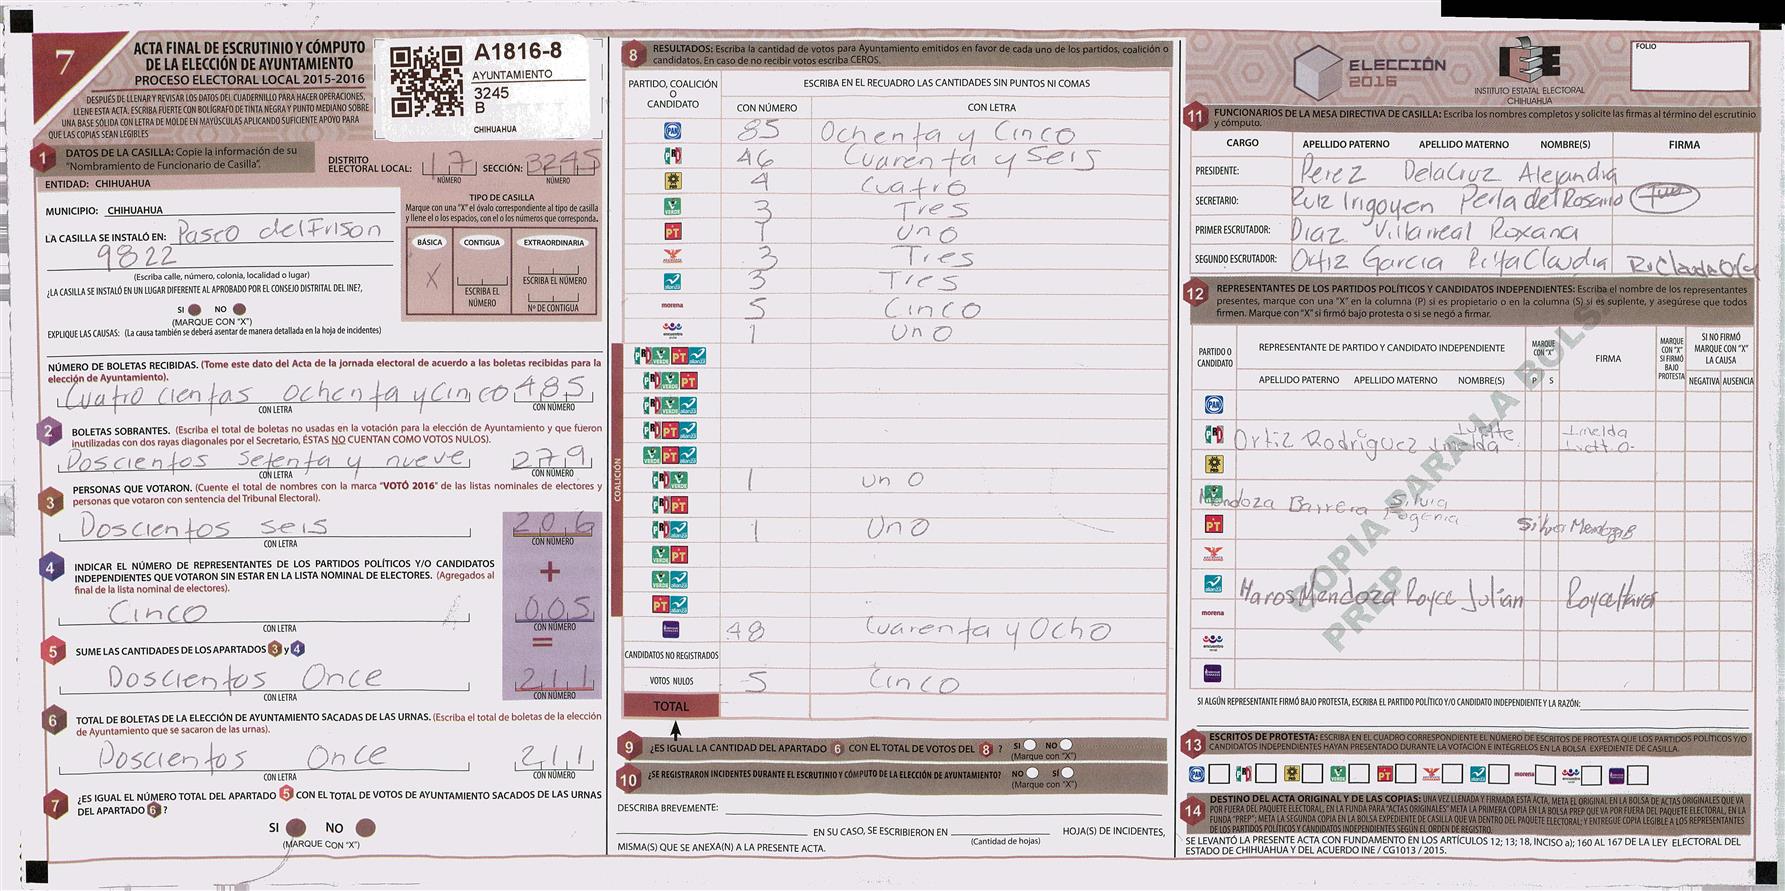 7
ACTA FINAL DE ESCRUTINIO Y CÓMPUTO
DE LA ELECCIÓN DE AYUNTAMIENTO
PROCESO ELECTORAL LOCAL 2015-2016
DESPUÉS DE LLENAR Y REVISAR LOS DATOS DEL CUADERNILLO PARA HACER OPERACIONES,
LLENE ESTA ACTA. ESCRIBA FUERTE CON BOLÍGRAFO DE TINTA NEGRA Y PUNTO MEDIANO SOBRE
UNA BASE SÓLIDA CON LETRA DE MOLDE EN MAYÚSCULAS APLICANDO SUFICIENTE APOYO PARA
QUE LAS COPIAS SEAN LEGIBLES
A1816-8
AYUNTAMIENTO
3245
B
CHIHUAHUA
1 DATOS DE LA CASILLA: Copie la información de su
"Nombramiento de Funcionario de Casilla".
DISTRITO ELECTORAL LOCAL: 17 NÚMERO
SECCIÓN: 3245 NÚMERO
ENTIDAD: CHIHUAHUA
MUNICIPIO: CHIHUAHUA
LA CASILLA SE INSTALÓ EN: Paseo del Frison
9822
(Escriba calle, número, colonia, localidad o lugar)
¿LA CASILLA SE INSTALÓ EN UN LUGAR DIFERENTE AL APROBADO POR EL CONSEJO DISTRITAL DEL INE?,
SI NO
(MARQUE CON "X")
EXPLIQUE LAS CAUSAS: (La causa también se deberá asentar de manera detallada en la hoja de incidentes)
TIPO DE CASILLA
Marque con una "X" el óvalo correspondiente al tipo de casilla
y llene el o los espacios, con el o los números que corresponda.
BÁSICA CONTIGUA EXTRAORDINARIA
X
ESCRIBA EL NÚMERO
ESCRIBA EL NÚMERO
Nº DE CONTIGUA
NÚMERO DE BOLETAS RECIBIDAS. (Tome este dato del Acta de la jornada electoral de acuerdo a las boletas recibidas para la
elección de Ayuntamiento).
Cuatro cientas Ochenta y Cinco 485
CON LETRA CON NÚMERO
2 BOLETAS SOBRANTES. (Escriba el total de boletas no usadas en la votación para la elección de Ayuntamiento y que fueron
inutilizadas con dos rayas diagonales por el Secretario, ÉSTAS NO CUENTAN COMO VOTOS NULOS).
Doscientos Setenta y nueve 279
CON LETRA CON NÚMERO
3 PERSONAS QUE VOTARON. (Cuente el total de nombres con la marca "VOTÓ 2016" de las listas nominales de electores y
personas que votaron con sentencia del Tribunal Electoral).
Doscientos seis 206
CON LETRA CON NÚMERO
+
4 INDICAR EL NÚMERO DE REPRESENTANTES DE LOS PARTIDOS POLÍTICOS Y/O CANDIDATOS
INDEPENDIENTES QUE VOTARON SIN ESTAR EN LA LISTA NOMINAL DE ELECTORES. (Agregados al
final de la lista nominal de electores).
Cinco 005
CON LETRA CON NÚMERO
=
5 SUME LAS CANTIDADES DE LOS APARTADOS 3 y 4
Doscientos Once 211
CON LETRA CON NÚMERO
6 TOTAL DE BOLETAS DE LA ELECCIÓN DE AYUNTAMIENTO SACADAS DE LAS URNAS. (Escriba el total de boletas de la elección
de Ayuntamiento que se sacaron de las urnas).
Doscientos Once 211
CON LETRA CON NÚMERO
7 ¿ES IGUAL EL NÚMERO TOTAL DEL APARTADO 5 CON EL TOTAL DE VOTOS DE AYUNTAMIENTO SACADOS DE LAS URNAS
DEL APARTADO 6?
SI NO
(MARQUE CON "X")
8 RESULTADOS: Escriba la cantidad de votos para Ayuntamiento emitidos en favor de cada uno de los partidos, coalición o
candidatos. En caso de no recibir votos escriba CEROS.
PARTIDO, COALICIÓN O CANDIDATO
ESCRIBA EN EL RECUADRO LAS CANTIDADES SIN PUNTOS NI COMAS
CON NÚMERO CON LETRA
PAN 85 Ochenta y Cinco
PRI 46 Cuarenta y Seis
PRD 4 Cuatro
VERDE 3 Tres
PT 1 Uno
3 Tres
alianza 3 Tres
morena 5 Cinco
encuentro social 1 Uno
COALICIÓN
PRI VERDE PT alianza
PRI VERDE PT
PRI VERDE alianza
PRI PT alianza
VERDE PT alianza
PRI VERDE 1 uno
PRI PT
PRI alianza 1 Uno
VERDE PT
VERDE alianza
PT alianza
48 Cuarenta y Ocho
CANDIDATOS NO REGISTRADOS
VOTOS NULOS 5 Cinco
TOTAL
9 ¿ES IGUAL LA CANTIDAD DEL APARTADO 6 CON EL TOTAL DE VOTOS DEL 8? SI NO
(Marque con "X")
10 ¿SE REGISTRARON INCIDENTES DURANTE EL ESCRUTINIO Y CÓMPUTO DE LA ELECCIÓN DE AYUNTAMIENTO? NO SÍ
(Marque con "X")
DESCRIBA BREVEMENTE:
EN SU CASO, SE ESCRIBIERON EN HOJA(S) DE INCIDENTES,
(Cantidad de hojas)
MISMA(S) QUE SE ANEXA(N) A LA PRESENTE ACTA.
ELECCIÓN
2016
IEE
INSTITUTO ESTATAL ELECTORAL
CHIHUAHUA
FOLIO
11 FUNCIONARIOS DE LA MESA DIRECTIVA DE CASILLA: Escriba los nombres completos y solicite las firmas al término del escrutinio
y cómputo.
CARGO APELLIDO PATERNO APELLIDO MATERNO NOMBRE(S) FIRMA
PRESIDENTE: Perez DelaCruz Alejandra
SECRETARIO: Ruiz Irigoyen Perla del Rosario
PRIMER ESCRUTADOR: Diaz Villarreal Roxana
SEGUNDO ESCRUTADOR: Ortiz Garcia Rita Claudia
12 REPRESENTANTES DE LOS PARTIDOS POLÍTICOS Y CANDIDATOS INDEPENDIENTES: Escriba el nombre de los representantes
presentes, marque con una "X" en la columna (P) si es propietario o en la columna (S) si es suplente, y asegúrese que todos
firmen. Marque con "X" si firmó bajo protesta o si se negó a firmar.
PARTIDO O CANDIDATO
REPRESENTANTE DE PARTIDO Y CANDIDATO INDEPENDIENTE
MARQUE CON "X"
FIRMA
MARQUE CON "X" SI FIRMÓ BAJO PROTESTA
SI NO FIRMÓ MARQUE CON "X" LA CAUSA
APELLIDO PATERNO APELLIDO MATERNO NOMBRE(S) P S NEGATIVA AUSENCIA
PAN
PRI Ortiz Rodriguez Imelda Ivette Imelda
PRD
VERDE
Mendoza Barrera Silvia
PT Silvia Mendoza B
alianza
Haros Mendoza Royce Julian Royce Haros
morena
encuentro social
COPIA PARA LA BOLSA
PREP
SI ALGÚN REPRESENTANTE FIRMÓ BAJO PROTESTA, ESCRIBA EL PARTIDO POLÍTICO Y/O CANDIDATO INDEPENDIENTE Y LA RAZÓN:
13 ESCRITOS DE PROTESTA: ESCRIBA EN EL CUADRO CORRESPONDIENTE EL NÚMERO DE ESCRITOS DE PROTESTA QUE LOS PARTIDOS POLÍTICOS Y/O
CANDIDATOS INDEPENDIENTES HAYAN PRESENTADO DURANTE LA VOTACIÓN E INTÉGRELOS EN LA BOLSA EXPEDIENTE DE CASILLA.
PAN PRI PRD VERDE PT alianza morena
14 DESTINO DEL ACTA ORIGINAL Y DE LAS COPIAS: UNA VEZ LLENADA Y FIRMADA ESTA ACTA, META EL ORIGINAL EN LA BOLSA DE ACTAS ORIGINALES QUE VA
POR FUERA DEL PAQUETE ELECTORAL, EN LA FUNDA PARA "ACTAS ORIGINALES" META LA PRIMERA COPIA EN LA BOLSA PREP QUE VA POR FUERA DEL PAQUETE ELECTORAL, EN LA
FUNDA "PREP"; META LA SEGUNDA COPIA EN LA BOLSA EXPEDIENTE DE CASILLA QUE VA DENTRO DEL PAQUETE ELECTORAL; Y ENTREGUE COPIA LEGIBLE A LOS REPRESENTANTES
DE LOS PARTIDOS POLÍTICOS Y CANDIDATOS INDEPENDIENTES SEGÚN EL ORDEN DE REGISTRO.
SE LEVANTÓ LA PRESENTE ACTA CON FUNDAMENTO EN LOS ARTÍCULOS 12; 13; 18, INCISO a); 160 AL 167 DE LA LEY ELECTORAL DEL
ESTADO DE CHIHUAHUA Y DEL ACUERDO INE / CG1013 / 2015.